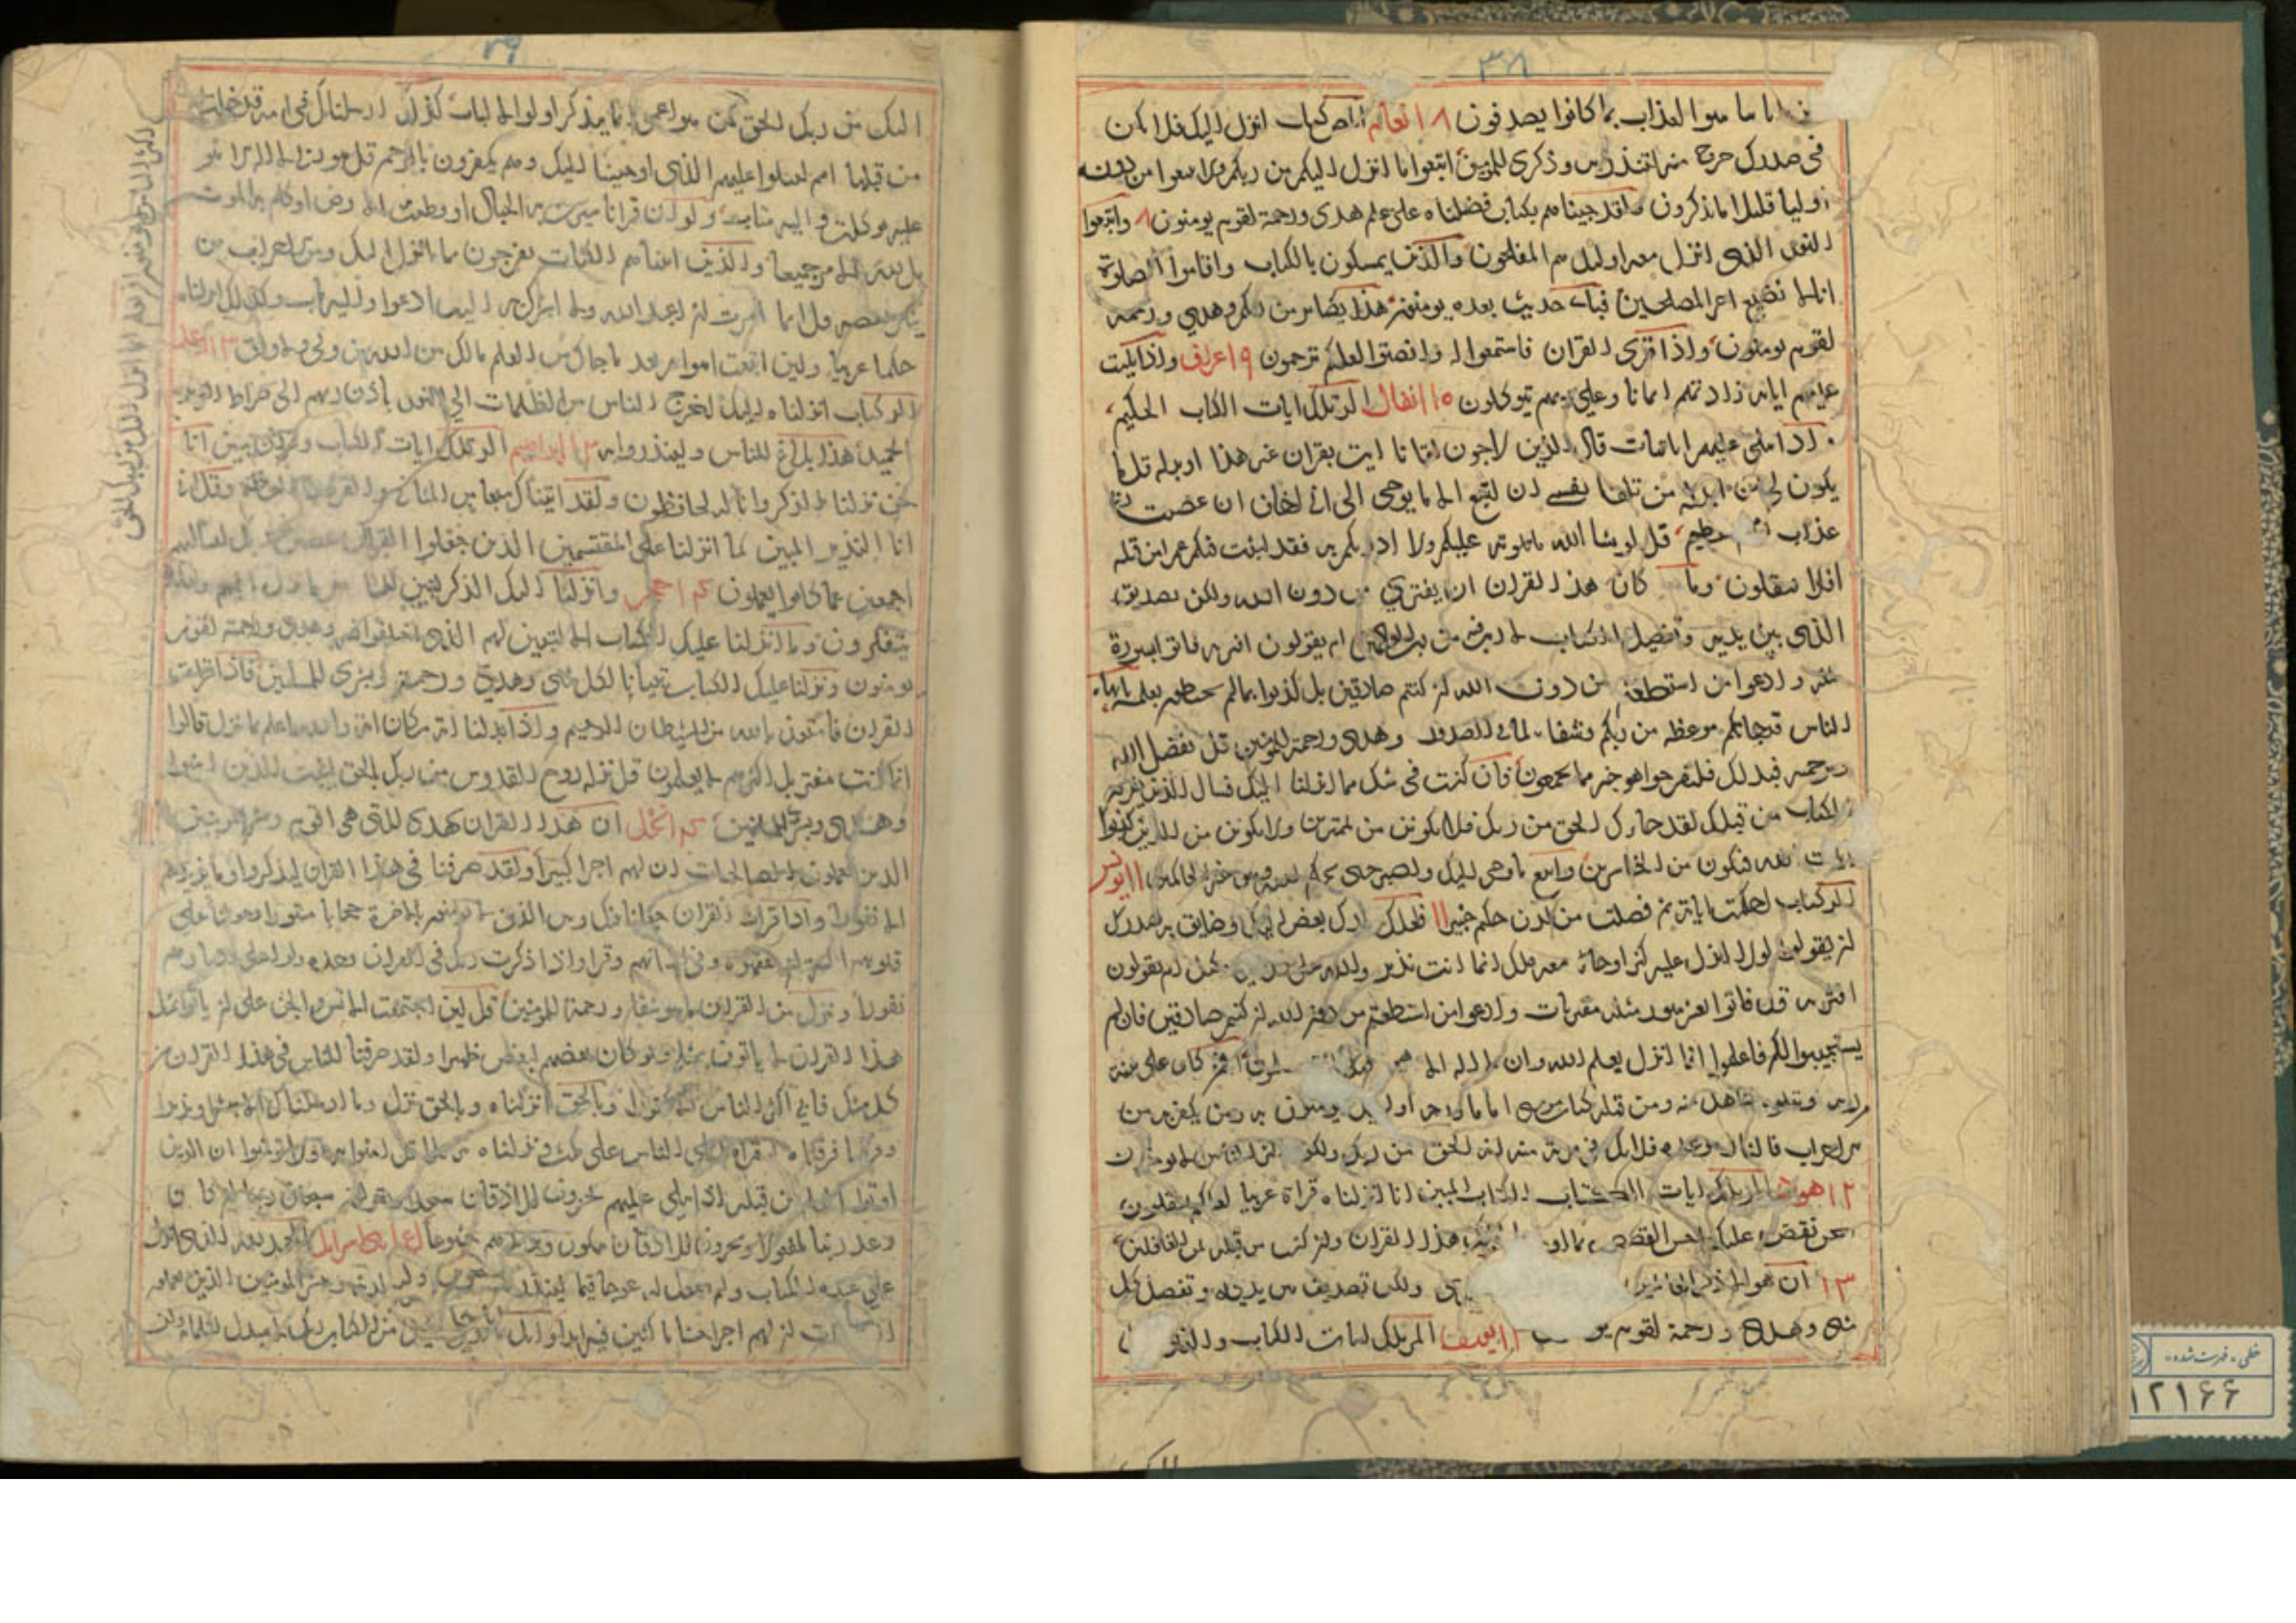 ۳۸
اياتنا سوا العذاب بما كانوا يصدفون ۸ انعام المص كتاب انزل اليك فلا يكن
فى صدرك حرج منه لتنذر به وذكرى للمومنين اتبعوا ما انزل اليكم من ربكم ولا تتبعوا من دونه
اوليا قليلا ما تذكرون ولقد جيناهم بكتاب فصلناه على علم هدى ورحمة لقوم يومنون واتبعوا
النور الذى انزل معه اوليك هم المفلحون والذين يمسكون بالكتاب واقاموا الصلوة
انا لا نضيع اجر المصلحين فباى حديث بعده يومنون هذا بصاير من ربكم وهدى ورحمة
لقوم يومنون واذا قرى القران فاستمعوا له وانصتوا لعلكم ترحمون ۹ اعراف واذا تليت
عليهم اياته زادتهم ايمانا وعلى ربهم يتوكلون ۱۵ انفال الر تلك ايات الكتاب الحكيم
واذا تتلى عليهم اياتنا بينات قال الذين لا يرجون لقانا ايت بقران غير هذا او بدله قل ما
يكون لى ان ابدله من تلقا نفسى ان اتبع الا ما يوحى الى انى اخاف ان عصيت ربى
عذاب يوم عظيم قل لو يشا الله ما تلوته عليكم ولا ادريكم به فقد لبثت فيكم عمرا من قبله
افلا تعقلون وما كان هذا القران ان يفترى من دون الله ولكن تصديق
الذى بين يديه وتفصيل الكتاب لا ريب فيه من رب العالمين ام يقولون افتريه فاتوا بسورة
مثله وادعوا من استطعتم من دون الله ان كنتم صادقين بل كذبوا بما لم يحيطوا بعلمه يا ايها
الناس قد جاتكم موعظه من ربكم وشفا لما فى الصدور وهدى ورحمة للمومنين قل بفضل الله
وبرحمته فبذلك فليفرحوا هو خير مما يجمعون فان كنت فى شك مما انزلنا اليك فسال الذين يقرون
الكتاب من قبلك لقد جاك الحق من ربك فلا تكونن من الممترين ولا تكونن من الذين كذبوا
بايات الله فتكون من الخاسرين واتبع ما يوحى اليك واصبر حتى يحكم الله وهو خير الحاكمين ۱۱ يونس
الر كتاب احكمت اياته ثم فصلت من لدن حكيم خبير فلعلك تارك بعض ما يوحى اليك وضايق به صدرك
ان يقولوا لولا انزل عليه كنز او جا معه ملك انما انت نذير والله على كل شى وكيل ام يقولون
افتريه قل فاتوا بعشر سور مثله مفتريات وادعوا من استطعتم من دون الله ان كنتم صادقين فان لم
يستجيبوا لكم فاعلموا انما انزل بعلم الله وان لا اله الا هو فهل انتم مسلمون افمن كان على بينة
من ربه ويتلوه شاهد منه ومن قبله كتاب موسى اماما ورحمة اوليك يومنون به ومن يكفر به من
الاحزاب فالنار موعده فلا تك فى مرية منه انه الحق من ربك ولكن اكثر الناس لا يومنون
۱۲ هود الر تلك ايات الكتاب المبين انا انزلناه قرانا عربيا لعلكم تعقلون
نحن نقص عليك احسن القصص بما اوحينا اليك هذا القران وان كنت من قبله لمن الغافلين
۱۳ ان هو الا ذكر للعالمين ولكن تصديق الذى بين يديه وتفصيل كل
شى وهدى ورحمة لقوم يومنون يوسف المر تلك ايات الكتاب والذى
۳۹
اليك من ربك الحق كمن هو اعمى انما يتذكر اولوا الالباب كذلك ارسلناك فى امة قد خلت
من قبلها امم لتتلوا عليهم الذى اوحينا اليك وهم يكفرون بالرحمن قل هو ربى لا اله الا هو
عليه توكلت واليه متاب ولو ان قرانا سيرت به الجبال او قطعت به الارض او كلم به الموتى
بل لله الامر جميعا والذين اتيناهم الكتاب يفرحون بما انزل اليك ومن الاحزاب من
ينكر بعضه قل انما امرت ان اعبد الله ولا اشرك به اليه ادعوا واليه ماب وكذلك انزلناه
حكما عربيا ولين اتبعت اهواهم بعد ما جاك من العلم مالك من الله من ولى ولا واق ۱۳ الرعد
الر كتاب انزلناه اليك لتخرج الناس من الظلمات الى النور باذن ربهم الى صراط العزيز
الحميد هذا بلاغ للناس ولينذروا به ابراهيم الر تلك ايات الكتاب وقران مبين انا
نحن نزلنا الذكر وانا له لحافظون ولقد اتيناك سبعا من المثانى والقران العظيم وقل انى
انا النذير المبين كما انزلنا على المقتسمين الذين جعلوا القران عضين فوربك لنسالنهم
اجمعين عما كانوا يعملون حجر وانزلنا اليك الذكر لتبين للناس ما نزل اليهم ولعلهم
يتفكرون وما انزلنا عليك الكتاب الا لتبين لهم الذى اختلفوا فيه وهدى ورحمة لقوم
يومنون ونزلنا عليك الكتاب تبيانا لكل شى وهدى ورحمة وبشرى للمسلمين فاذا قرات
القران فاستعذ بالله من الشيطان الرجيم واذا بدلنا اية مكان اية والله اعلم بما ينزل قالوا
انما انت مفتر بل اكثرهم لا يعلمون قل نزله روح القدس من ربك بالحق ليثبت الذين امنوا
وهدى وبشرى للمسلمين النحل ان هذا القران يهدى للتى هى اقوم ويبشر المومنين
الذين يعملون الصالحات ان لهم اجرا كبيرا ولقد صرفنا فى هذا القران ليذكروا وما يزيدهم
الا نفورا واذا قرات القران جعلنا بينك وبين الذين لا يومنون بالاخرة حجابا مستورا وجعلنا على
قلوبهم اكنة ان يفقهوه وفى اذانهم وقرا واذا ذكرت ربك فى القران وحده ولوا على ادبارهم
نفورا وننزل من القران ما هو شفا ورحمة للمومنين قل لين اجتمعت الانس والجن على ان ياتوا بمثل
هذا القران لا ياتون بمثله ولو كان بعضهم لبعض ظهيرا ولقد صرفنا للناس فى هذا القران من
كل مثل فابى اكثر الناس الا كفورا وبالحق انزلناه وبالحق نزل وما ارسلناك الا مبشرا ونذيرا
وقرانا فرقناه لتقراه على الناس على مكث ونزلناه تنزيلا قل امنوا به او لا تومنوا ان الذين
اوتوا العلم من قبله اذا يتلى عليهم يخرون للاذقان سجدا ويقولون سبحان ربنا ان كان
وعد ربنا لمفعولا ويخرون للاذقان يبكون ويزيدهم خشوعا بنى اسرايل الحمد لله الذى انزل
على عبده الكتاب ولم يجعل له عوجا قيما لينذر ويبشر المومنين الذين يعملون
الصالحات ان لهم اجرا حسنا ماكثين فيه ابدا من كتاب ربك لا مبدل لكلماته ولن
خطى - فهرست شده -
۱۲۱۶۶